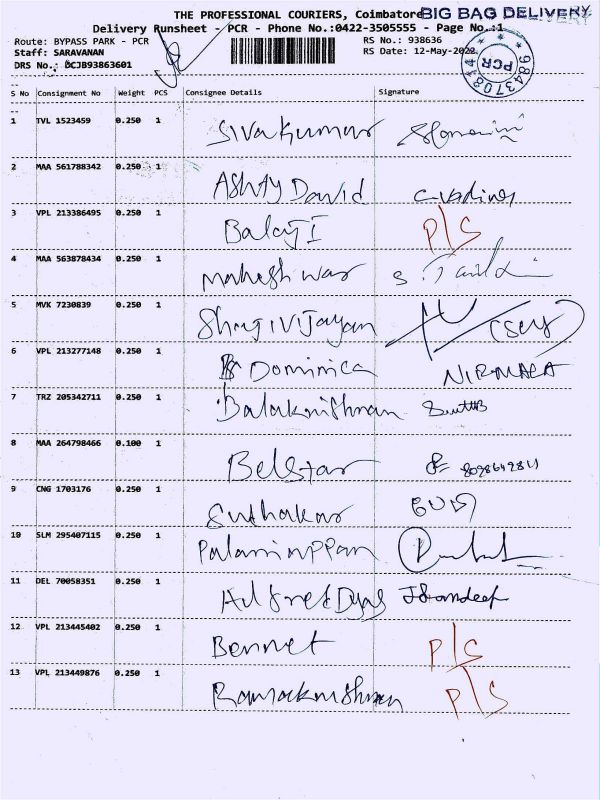 THE PROFESSIONAL COURIERS, Coimbatore BIG BAG DELIVERY
Delivery Runsheet - PCR - Phone No.:0422-3505555 - Page No.:1
Route: BYPASS PARK - PCR RS No.: 938636
Staff: SARAVANAN RS Date: 12-May-2022
DRS No.: DCJB93863601
PCR
9843708144
S No Consignment No Weight PCS Consignee Details Signature
1 TVL 1523459 0.250 1 Sivakumar
2 MAA 561788342 0.250 1 Ashly David
3 VPL 213386495 0.250 1 Balaji I P/S
4 MAA 563878434 0.250 1 Maheshwar
5 MVK 7230839 0.250 1 Shajivijayan
6 VPL 213277148 0.250 1 Dominica NIRMALA
7 TRZ 205342711 0.250 1 Balakrishnan
8 MAA 264798466 0.100 1 Belstar
9 CNG 1703176 0.250 1 Suthakar
10 SLM 295407115 0.250 1 Palaniappan
11 DEL 70058351 0.250 1 Alfred Dyas
12 VPL 213445402 0.250 1 Bennet P/S
13 VPL 213449876 0.250 1 Ramakrishnan P/S